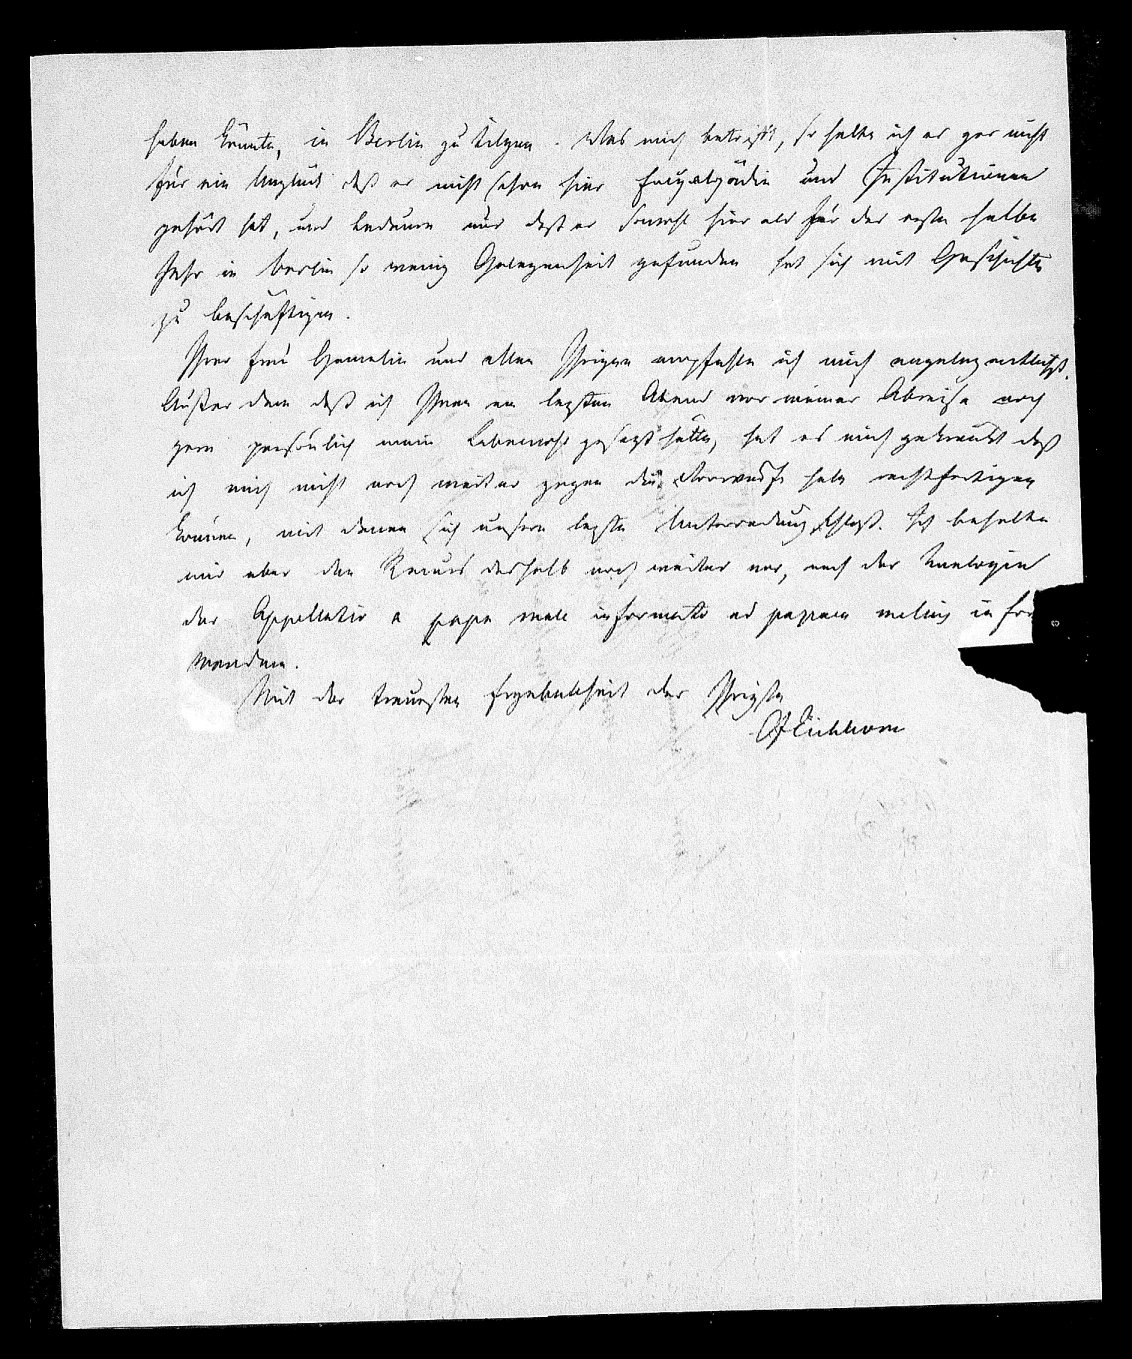 haben könnte, in Berlin zu tilgen. Was mich betrifft, so halte ich es gar nicht
für ein Unglück daß er nicht schon hier Encyclopädie und Institutionen
gehört hat, und bedaure nur daß er sowohl hier als für das erste halbe
Jahr in Berlin so wenig Gelegenheit gefunden hat sich mit Geschichte
zu beschäftigen.
Ihrer Frau Gemalin und allen Ihrigen empfehle ich mich angelegentlichst.
Außer dem daß ich Ihnen am lezten Abend vor meiner Abreise noch
gern persönlich mein Lebewohl gesagt hätte, hat es mich gekränkt daß
ich mich nicht noch weiter gegen die Vorwürfe habe rechtfertigen
können, mit denen sich unsere lezte Unterredung schloß. Ich behalte
mir aber den Recurs deshalb noch weiter vor, nach der Analogie
der Appellatio a papa male informato ad papam melius infor
mandum.
Mit der treuesten Ergebenheit der Ihrigste
CFEichhorn